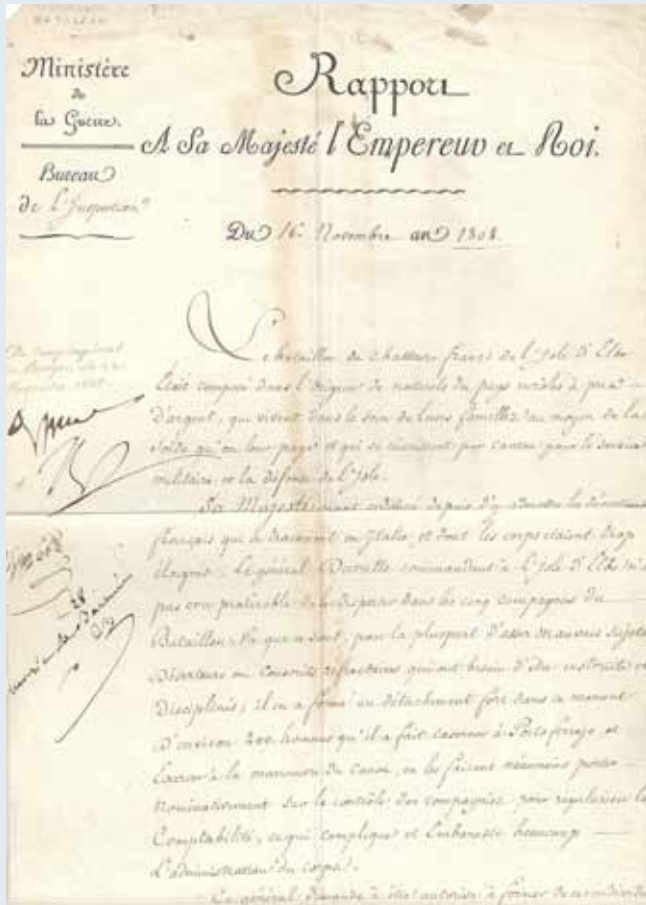 Ministère
de
la Guerre.
Bureau
de l'Inspection
Rapport
A Sa Majesté l'Empereur et Roi.
Du 16 Novembre an 1808.
Le bataillon de chasseurs francs de l'Isle d'Elbe
était composé dans l'origine de naturels du pays enrôlés à prix
D'argent, qui vivent dans le sein de leurs familles au moyen de la
solde qu'on leur paye et qui se réunissent par canton pour le service
militaire et la défense de l'Isle.
Sa Majesté ayant ordonné depuis d'y admettre les déserteurs
français qui se trouvaient en Italie, et dont les corps étaient trop
éloignés. Le général commandant à l'Isle d'Elbe n'a
pas cru praticable de les disperser dans les cinq compagnies du
Bataillon, vu que ce sont, pour la pluspart d'assez mauvais sujets
Déserteurs ou Conscrits réfractaires qui ont besoin d'être instruits et
Disciplinés; il en a formé un détachement fort dans ce moment
D'environ 200 hommes qu'il a fait caserner à Porto ferrajo et
à la manœuvre du canon, en les faisant néanmoins porter
nominativement sur le contrôle des compagnies pour régulariser la
Comptabilité, ce qui complique et embarrasse beaucoup
L'administration du corps.
Ce général demande à être autorisé à former de ces individus